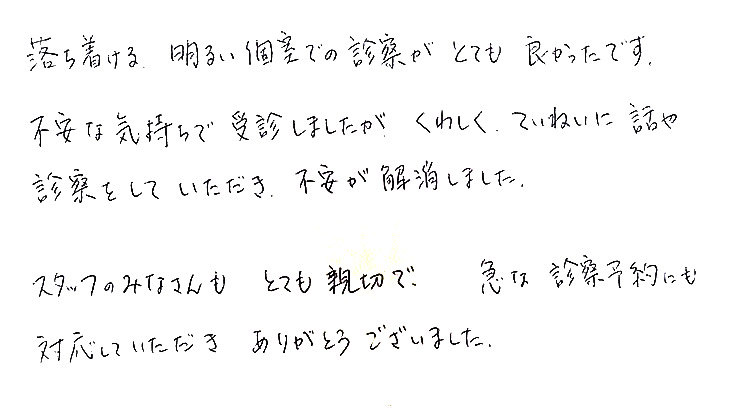 落ち着ける、明るい個室での診察がとても良かったです。
不安な気持ちで受診しましたが、くわしく、ていねいに話や
診察をしていただき、不安が解消しました。
スタッフのみなさんもとても親切で、急な診察予約にも
対応していただきありがとうございました。